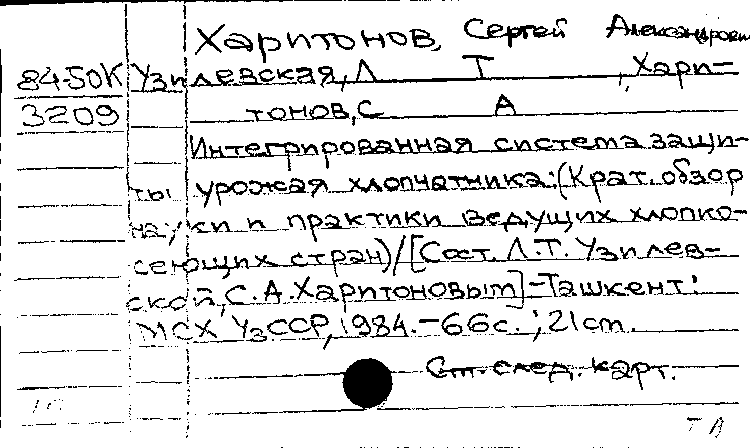 Харитонов, Сергей Александрович
84-50К Узилевская, Л Т , Хари-
3209 тонов, С А
Интегрированная система защи-
ты урожая хлопчатника: (Крат. обзор
науки и практики ведущих хлопко-
сеющих стран)/[Сост. Л.Т. Узилев-
ской, С.А. Харитоновым]-Ташкент:
МСХ УзССР, 1984.-66с.; 21cm.
Cm. след. карт.